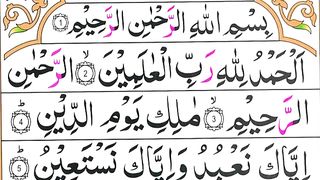 بِسْمِ اللهِ الرَّحْمٰنِ الرَّحِيْمِ ①
اَلْحَمْدُ لِلّٰهِ رَبِّ الْعٰلَمِيْنَ ② الرَّحْمٰنِ
الرَّحِيْمِ ③ مٰلِكِ يَوْمِ الدِّيْنِ ④
اِيَّاكَ نَعْبُدُ وَاِيَّاكَ نَسْتَعِيْنُ ⑤